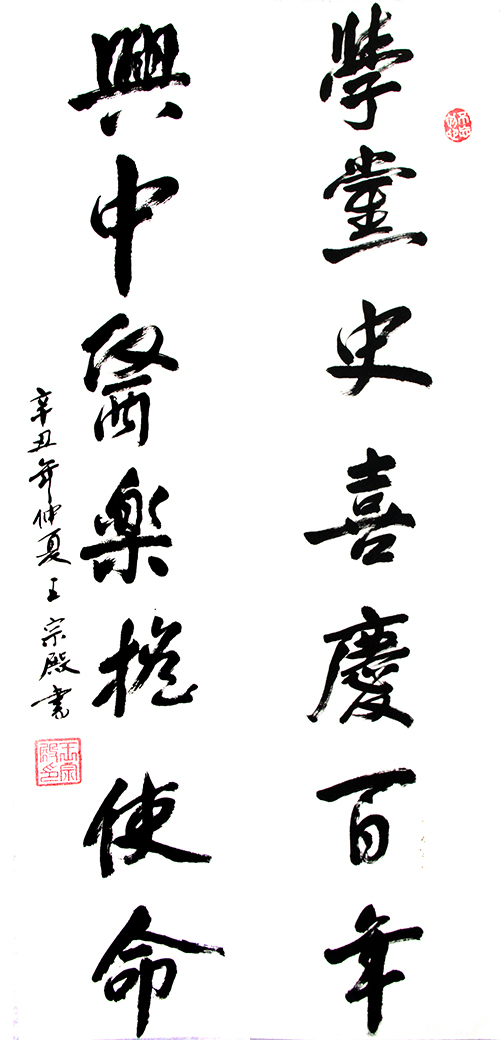 學黨史喜慶百年
興中醫樂擔使命
辛丑年仲夏王宗殿書
王宗殿印